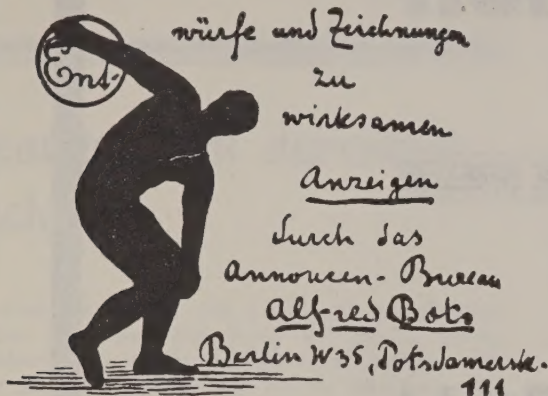 Ent-
würfe und Zeichnungen
zu
wirksamen
Anzeigen
durch das
Annoncen-Bureau
Alfred Boks
Berlin W35, Potsdamerstr.
111